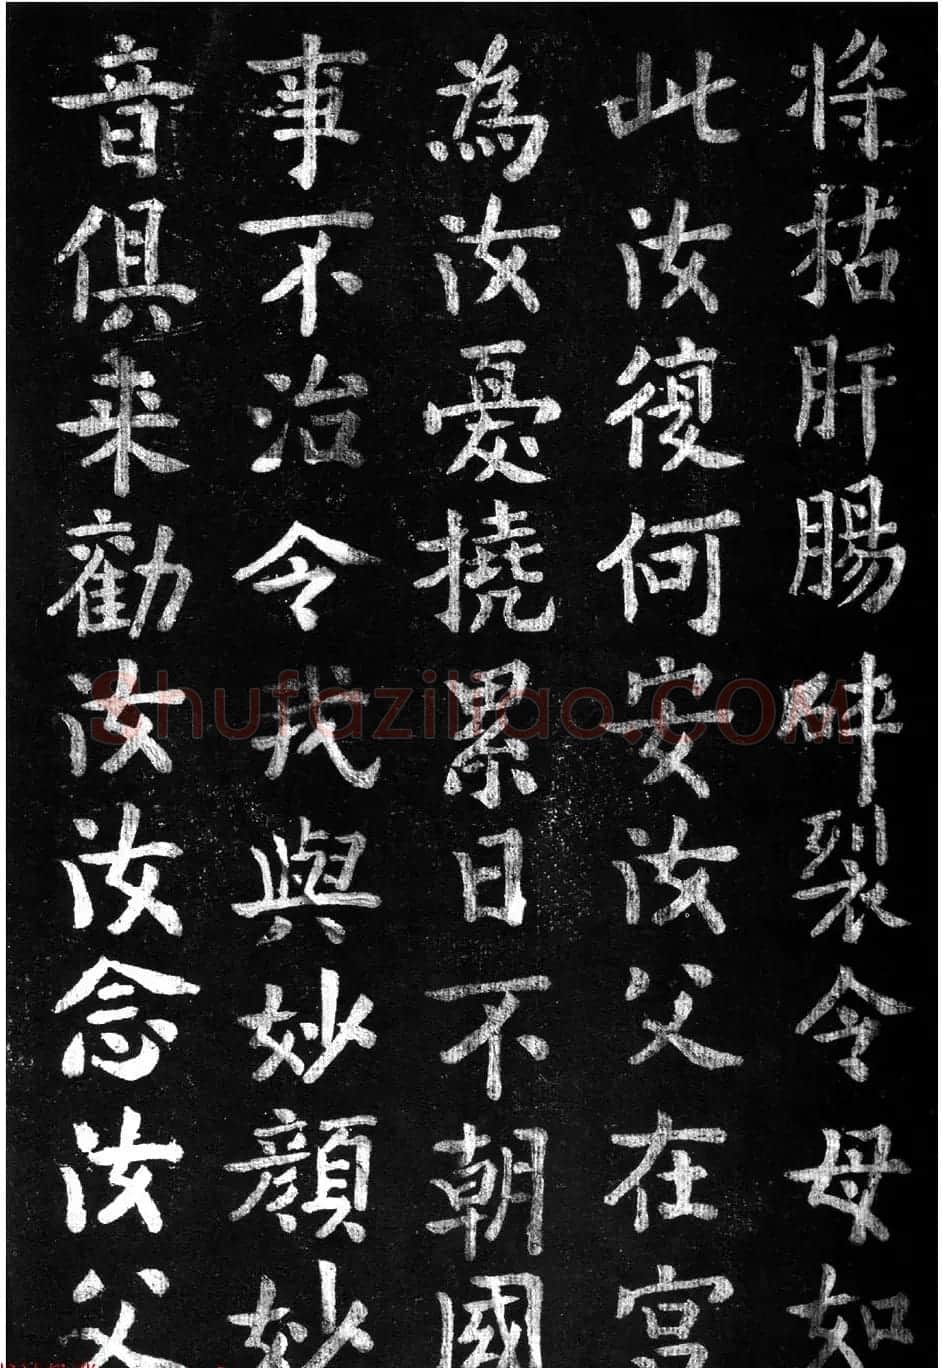 将枯肝腸碎裂今母如
此汝復何安汝父在宫
為汝憂撓累日不朝國
事不治令我與妙顔妙
音俱来勸汝汝念汝父
Shufaziliao.COM